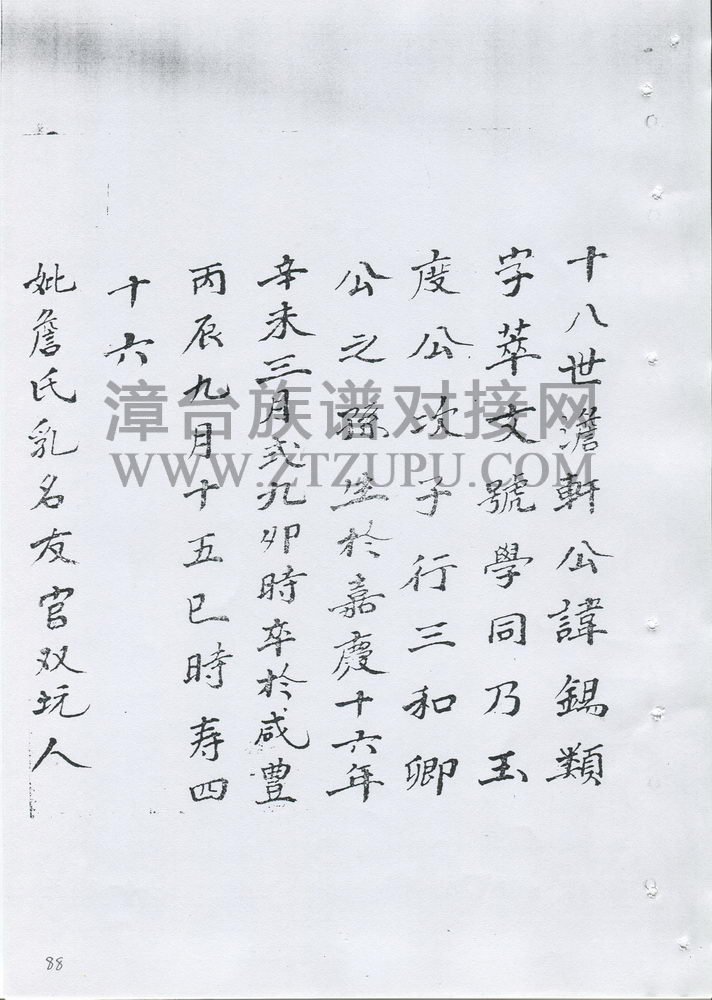 十八世澹軒公諱錫類
字萃文號學同乃玉
度公次子行三和卿
公之孫生於嘉慶十六年
辛未三月弍九卯時卒於咸豊
丙辰九月十五巳時寿四
十六
妣詹氏乳名友官双坑人
漳台族谱对接网
WWW.ZTZUPU.COM
88